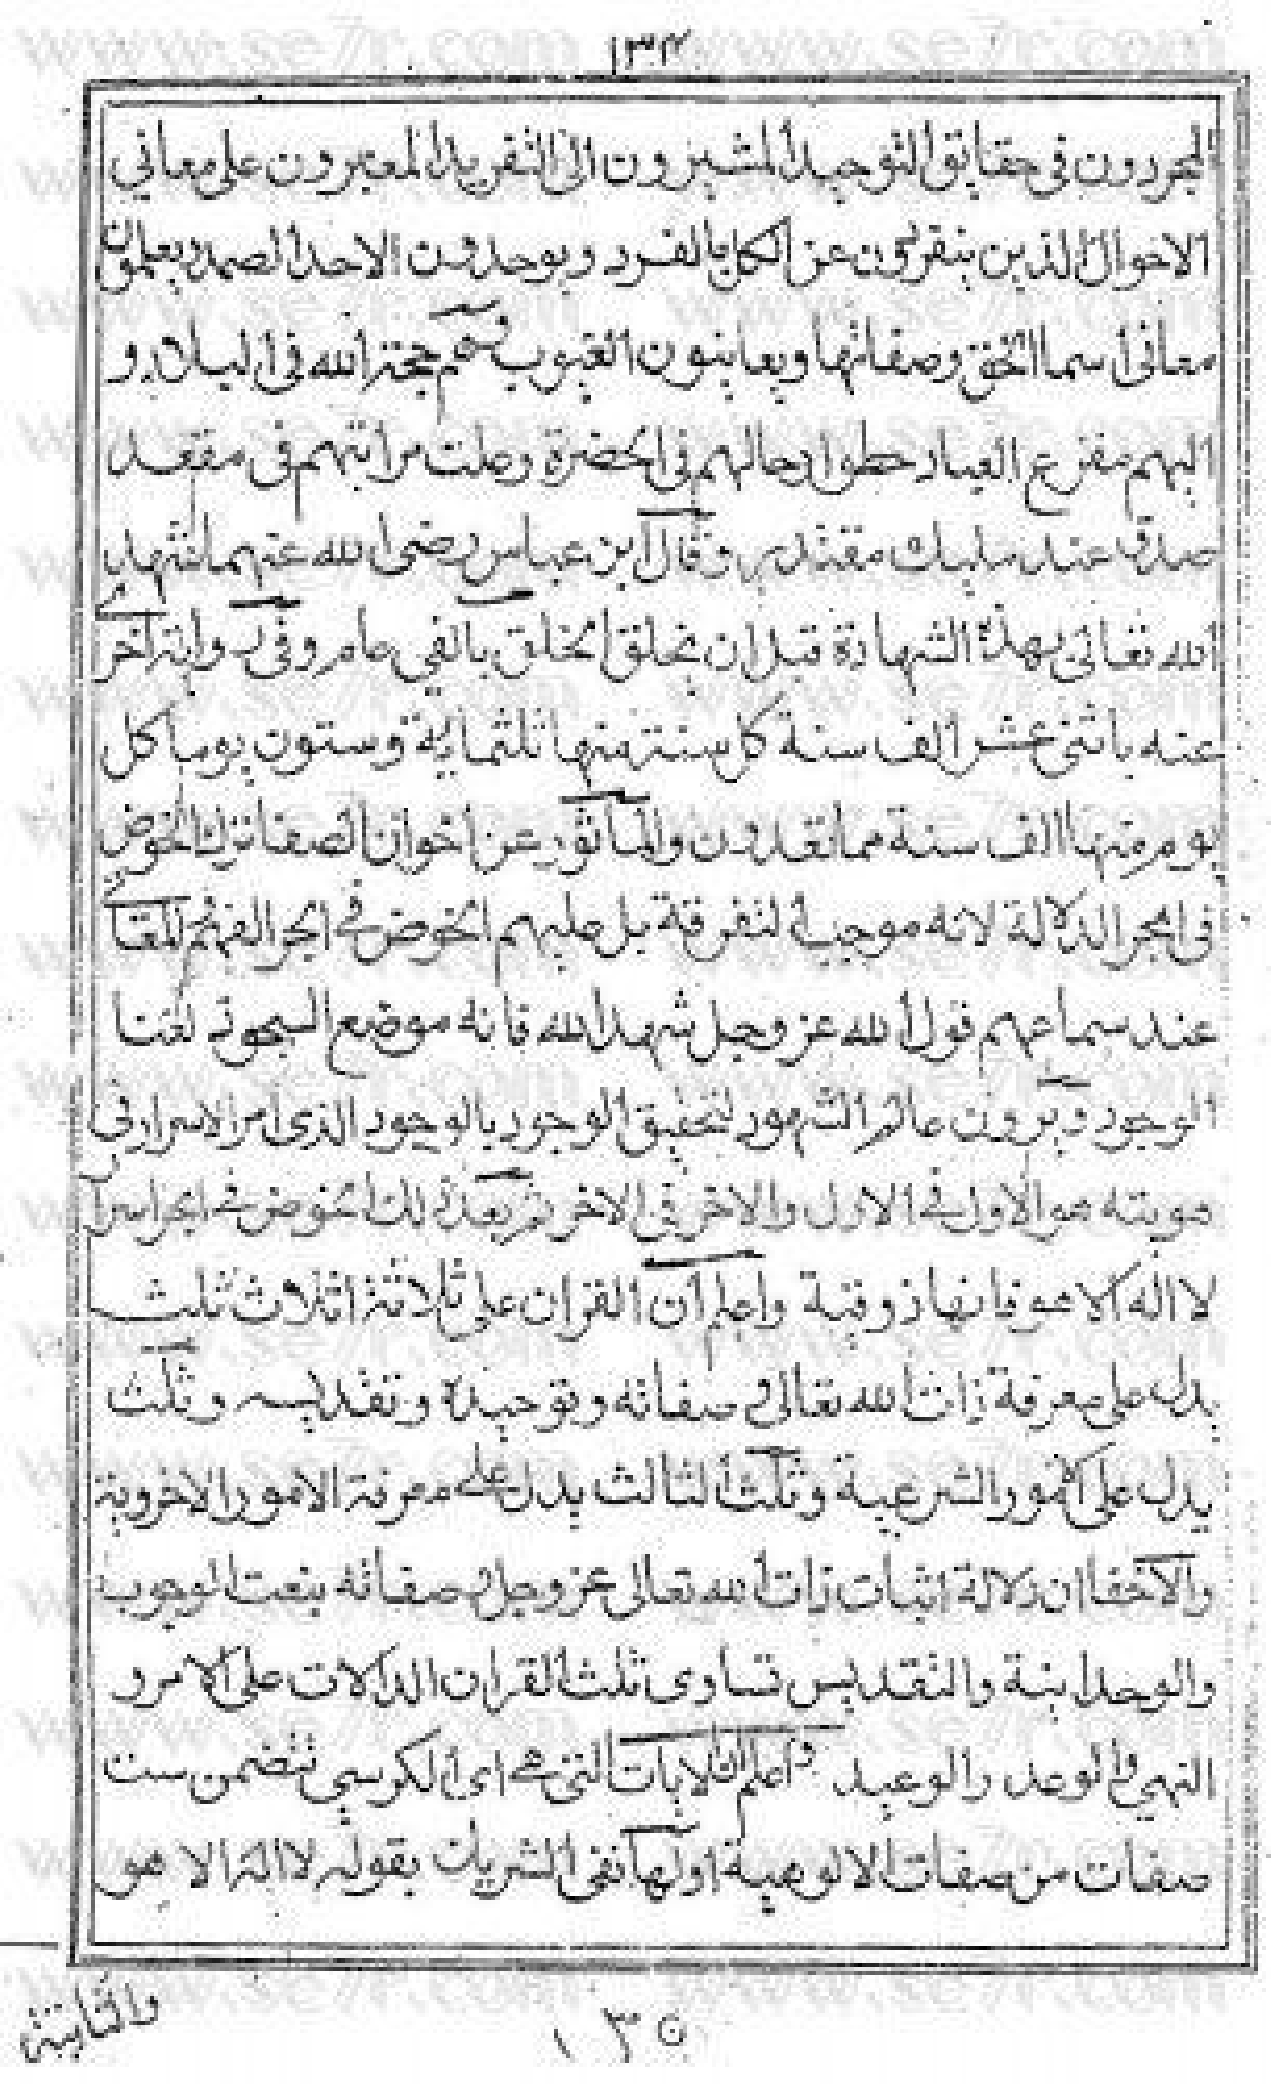 ١٣٤
المجردون فى حقايق التوحيد المشيرون الى التفريد المعتبرون على معاني
الاحوال الذين ينفردون عن الكل بالفرد ويوحدون الاحد الصمد يعلمون
معانى اسما الحق وصفاتها ويعاينون الغيوب وهم حجة الله فى البلاد و
اليهم مفزع العباد حطوا رحالهم فى الحضرة وعلت مراتبهم فى مقعد
صدق عند مليك مقتدر وقال ابن عباس رضى الله عنهما شهد
الله تعالى بهذه الشهادة قبل ان يخلق الخلق بالفي عام وفى رواية اخر
عنه باثنى عشر الف سنة كل سنة منها ثلثماية وستون يوما كل
يوم منها الف سنة مما تعدون والمأثور عن اخوان الصفا ترك الخوض
فى ابحر الدلالة لانه موجب التفرقة بل عليهم الخوض في ابحر الفهم
عند سماعهم قول الله عز وجل شهد الله فانه موضع السجود
الوجود ويرون عالم الشهود لتحقيق الوجود بالوجود الذى الاسرار فى
هويته هو الاول في الاول والاخر فى الاخر ثم بعد ذلك الخوض في ابحر اسرا
لا اله الا هو فانها ذوقية واعلم ان القران على ثلاثة اثلاث ثلث
يدل على معرفة ذات الله تعالى وصفاته وتوحيده وتقديسه وثلث
يدل على الامور الشرعية وثلث الثالث يدل على معرفة الامور الاخروية
والاخفا ان دلالة اثبات ذات الله تعالى عز وجل وصفاته بنعت الوجوب
والوحدانية والتقديس تساوى ثلث القران الدلالات على الامر و
النهي والوعد والوعيد واعلم ان الايات التى هي اى الكرسي تتضمن ست
صفات من صفات الالوهية اولها نفى الشريك بقوله لا اله الا هو
والثانية
١٣٥
www.se7r.com